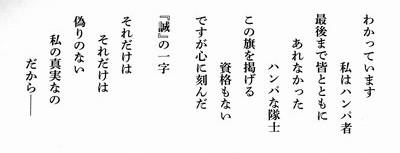 わかっています
私はハンパ者
最後まで皆とともに
あれなかった
ハンパな隊士
この旗を掲げる
資格もない
ですが心に刻んだ
『誠』の一字
それだけは
それだけは
偽りのない
私の真実なの
だから――